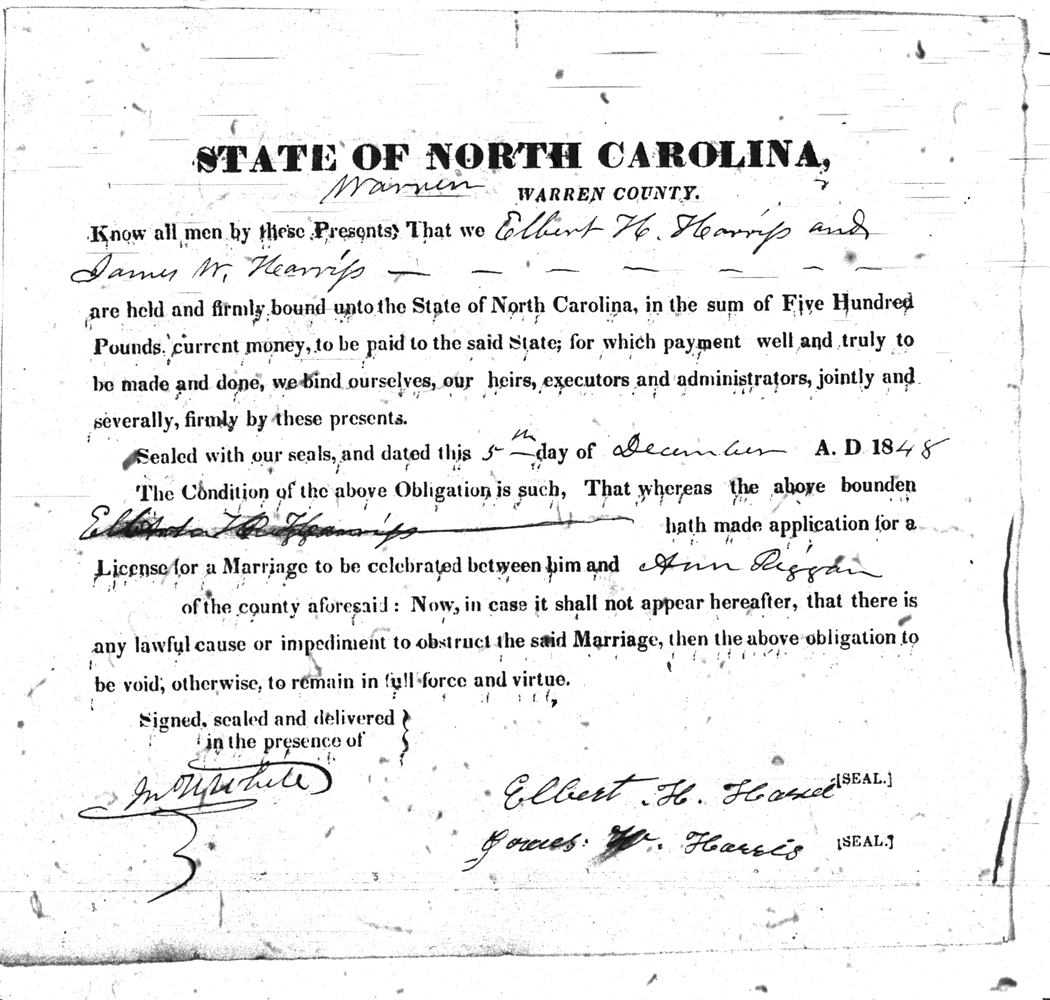 STATE OF NORTH CAROLINA,
Warren WARREN COUNTY.
Know all men by these Presents, That we Elbert H. Harriss and
James W. Harriss — — — — — — —
are held and firmly bound unto the State of North Carolina, in the sum of Five Hundred
Pounds, current money, to be paid to the said State; for which payment well and truly to
be made and done, we bind ourselves, our heirs, executors and administrators, jointly and
severally, firmly by these presents.
Sealed with our seals, and dated this 5th day of December A. D 1848
The Condition of the above Obligation is such, That whereas the above bounden
Harriss hath made application for a
License for a Marriage to be celebrated between him and Ann Riggan
of the county aforesaid: Now, in case it shall not appear hereafter, that there is
any lawful cause or impediment to obstruct the said Marriage, then the above obligation to
be void, otherwise, to remain in full force and virtue.
Signed, sealed and delivered }
in the presence of
White
Elbert H. [SEAL.]
James W. Harris [SEAL.]